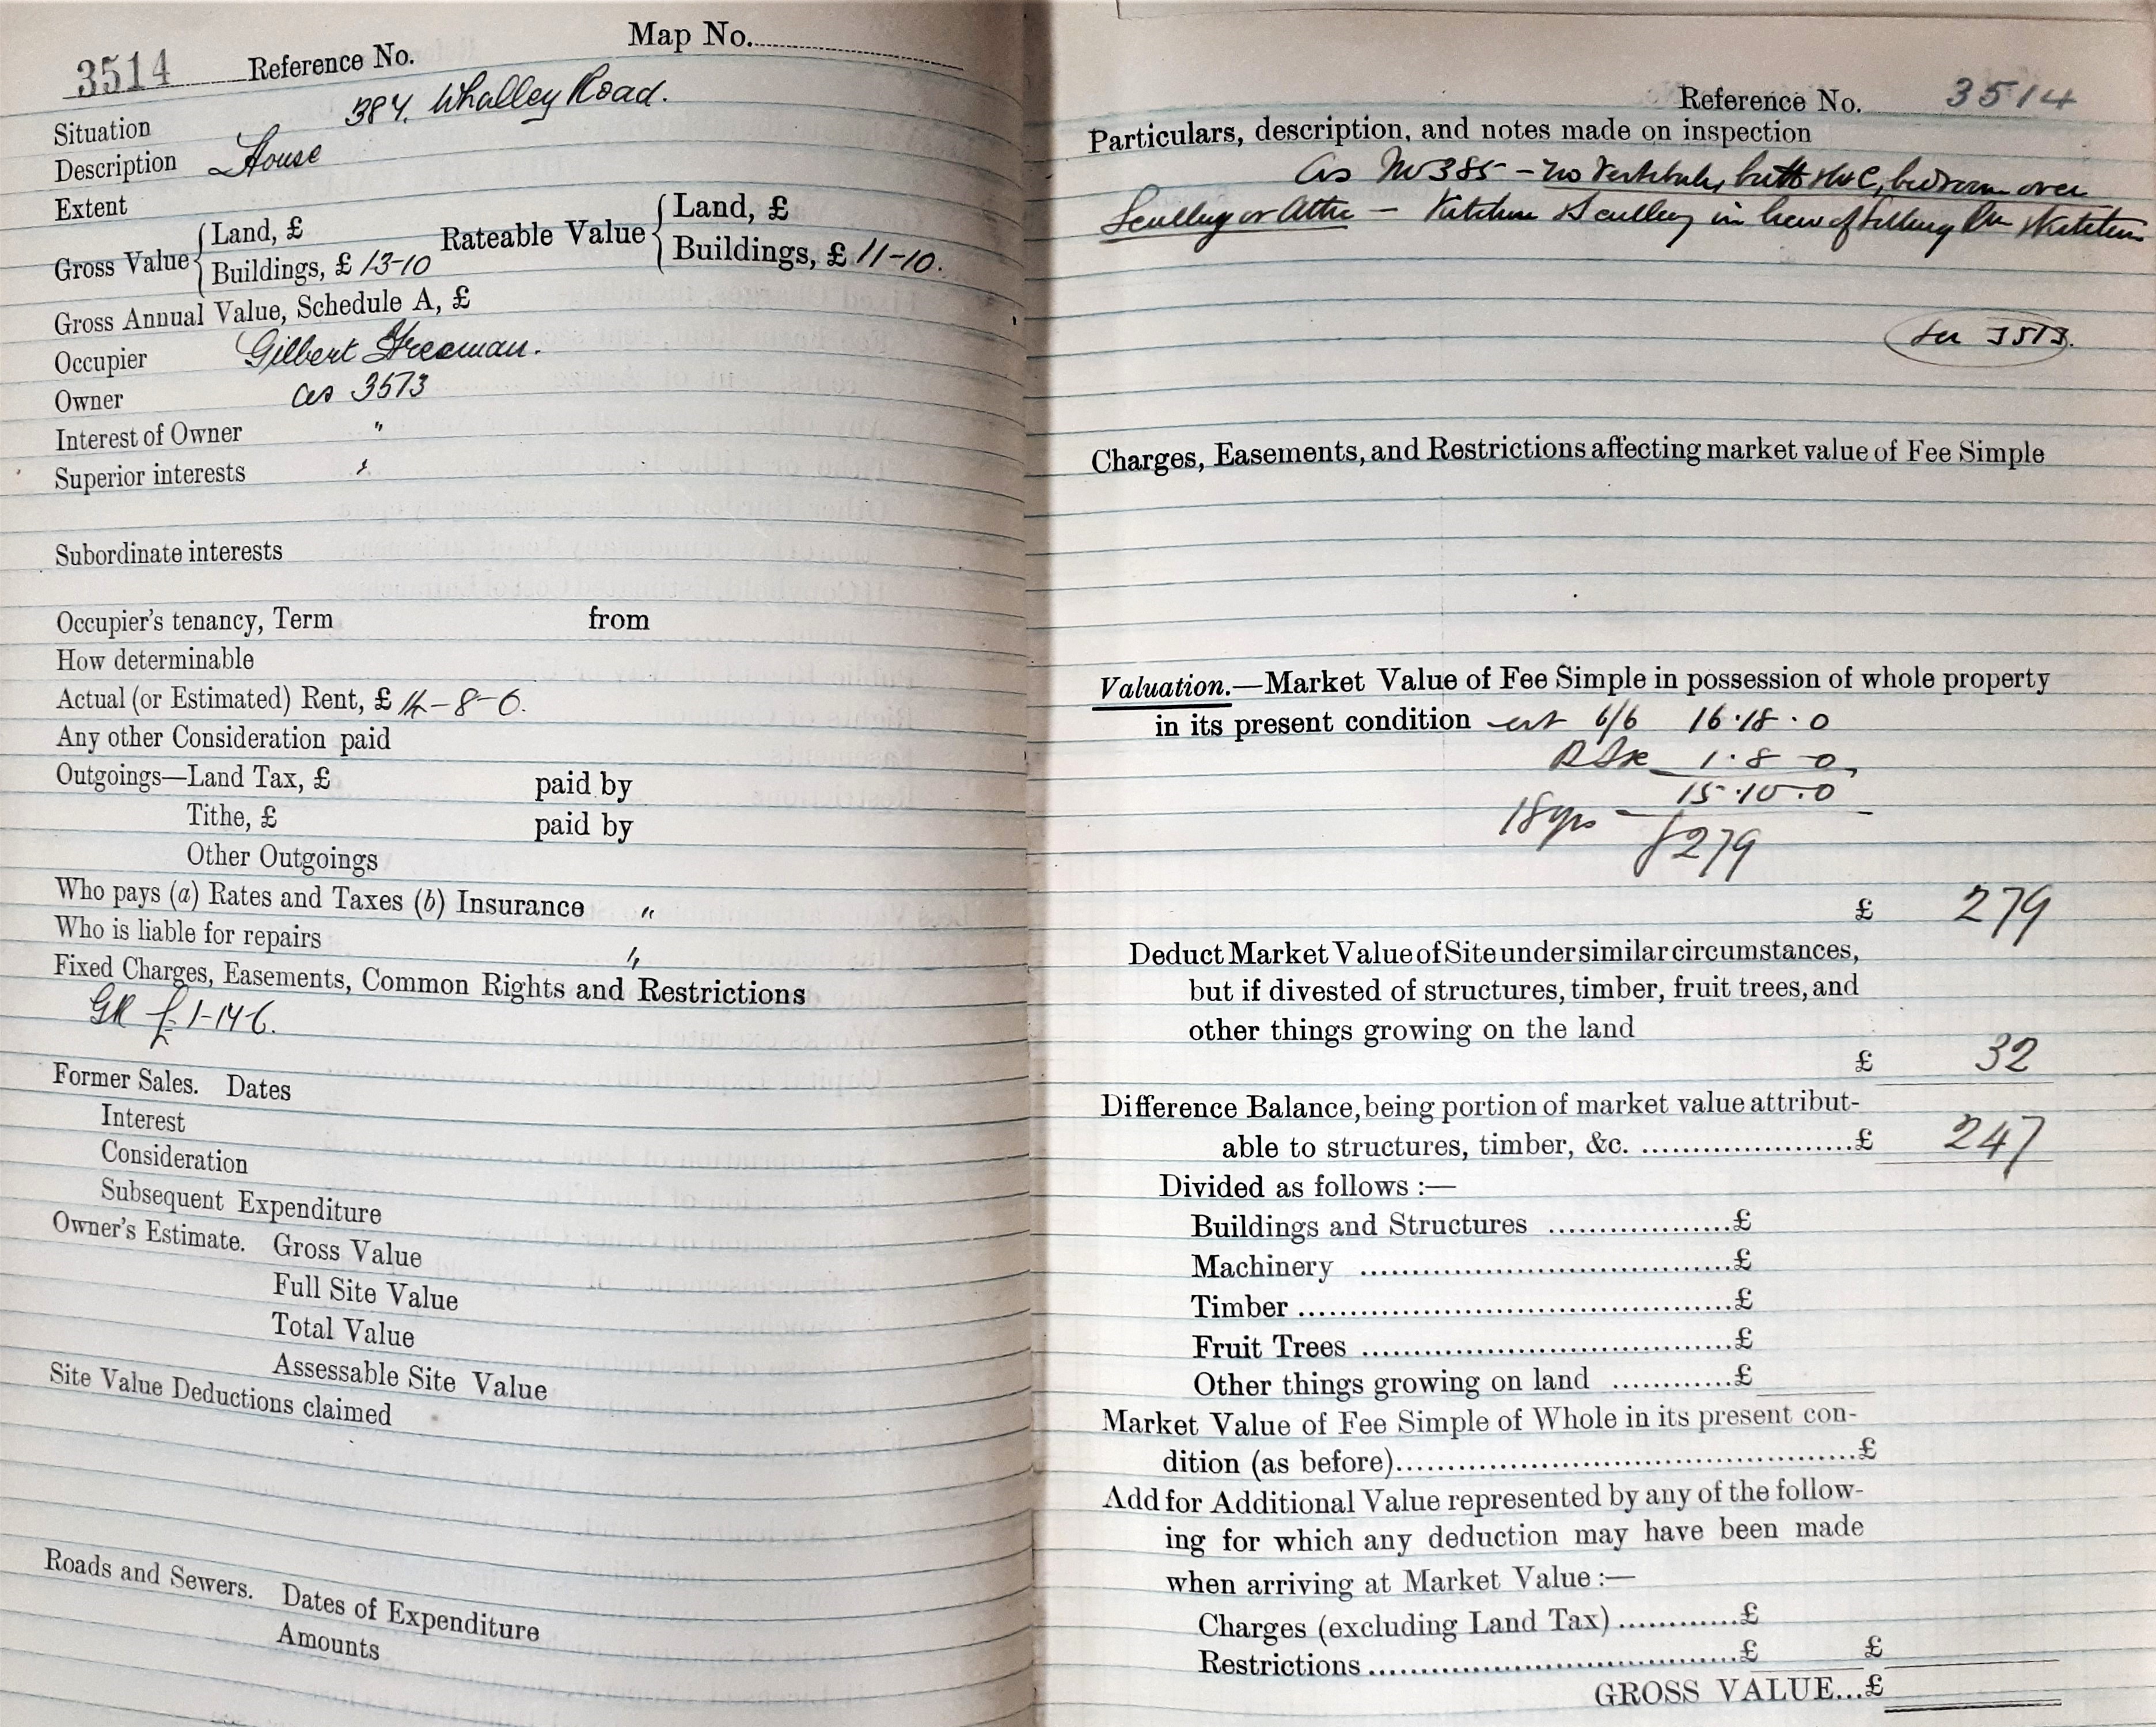 3514 Reference No. Map No.
Situation 384, Whalley Road.
Description House
Extent
Gross Value { Land, £
Buildings, £ 13-10
Rateable Value { Land, £
Buildings, £ 11-10.
Gross Annual Value, Schedule A, £
Occupier Gilbert Freeman.
Owner as 3513
Interest of Owner "
Superior interests
Subordinate interests
Occupier's tenancy, Term from
How determinable
Actual (or Estimated) Rent, £ 14-8-6.
Any other Consideration paid
Outgoings—Land Tax, £ paid by
Tithe, £ paid by
Other Outgoings
Who pays (a) Rates and Taxes (b) Insurance "
Who is liable for repairs "
Fixed Charges, Easements, Common Rights and Restrictions
GR £1-14-6.
Former Sales. Dates
Interest
Consideration
Subsequent Expenditure
Owner's Estimate. Gross Value
Full Site Value
Total Value
Assessable Site Value
Site Value Deductions claimed
Roads and Sewers. Dates of Expenditure
Amounts
Reference No. 3514
Particulars, description, and notes made on inspection
as No 385 - no Vestibule, bath & WC, bedroom over
Scullery or Attic - Kitchen & Scullery in lieu of
see 3513.
Charges, Easements, and Restrictions affecting market value of Fee Simple
Valuation.—Market Value of Fee Simple in possession of whole property
in its present condition 6/6 16.18.0
1.8 0
15.10.0
18 yrs
£279
£ 279
Deduct Market Value of Site under similar circumstances,
but if divested of structures, timber, fruit trees, and
other things growing on the land
£ 32
Difference Balance, being portion of market value attribut-
able to structures, timber, &c. ....................£ 247
Divided as follows :—
Buildings and Structures ..................£
Machinery ..................£
Timber ..................£
Fruit Trees ..................£
Other things growing on land ............£
Market Value of Fee Simple of Whole in its present con-
dition (as before)..................£
Add for Additional Value represented by any of the follow-
ing for which any deduction may have been made
when arriving at Market Value :—
Charges (excluding Land Tax) ............£
Restrictions ..................£ £
GROSS VALUE...£